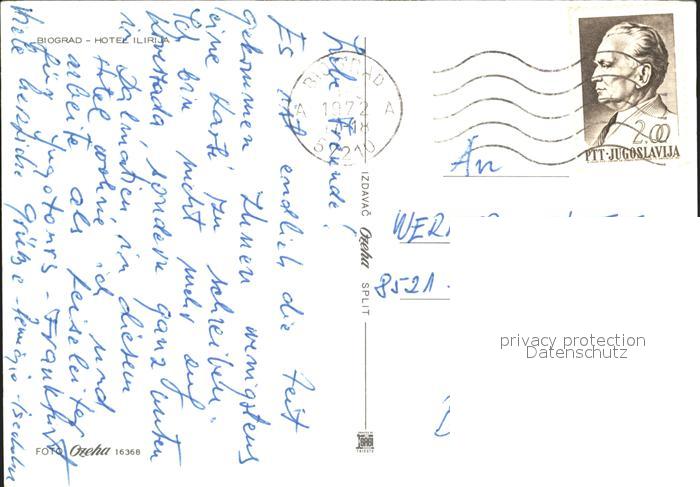 BIOGRAD - HOTEL ILIRIJA
Liebe Freunde!
Es ist endlich die Zeit
gekommen Ihnen wenigstens
eine Karte zu schreiben.
Ich bin nicht mehr auf
sondern ganz unten
in Dalmatien in diesem
Hotel wohne ich und
arbeite als Reiseleiter
für Yugotours - Frankfurt
Viele herzliche Grüsse -
FOTO Ozeha 16368
IZDAVAČ Ozeha SPLIT
BIOGRAD
A 1972 A
18
2.00
PTT-JUGOSLAVIJA
An
WER
8521
privacy protection
Datenschutz